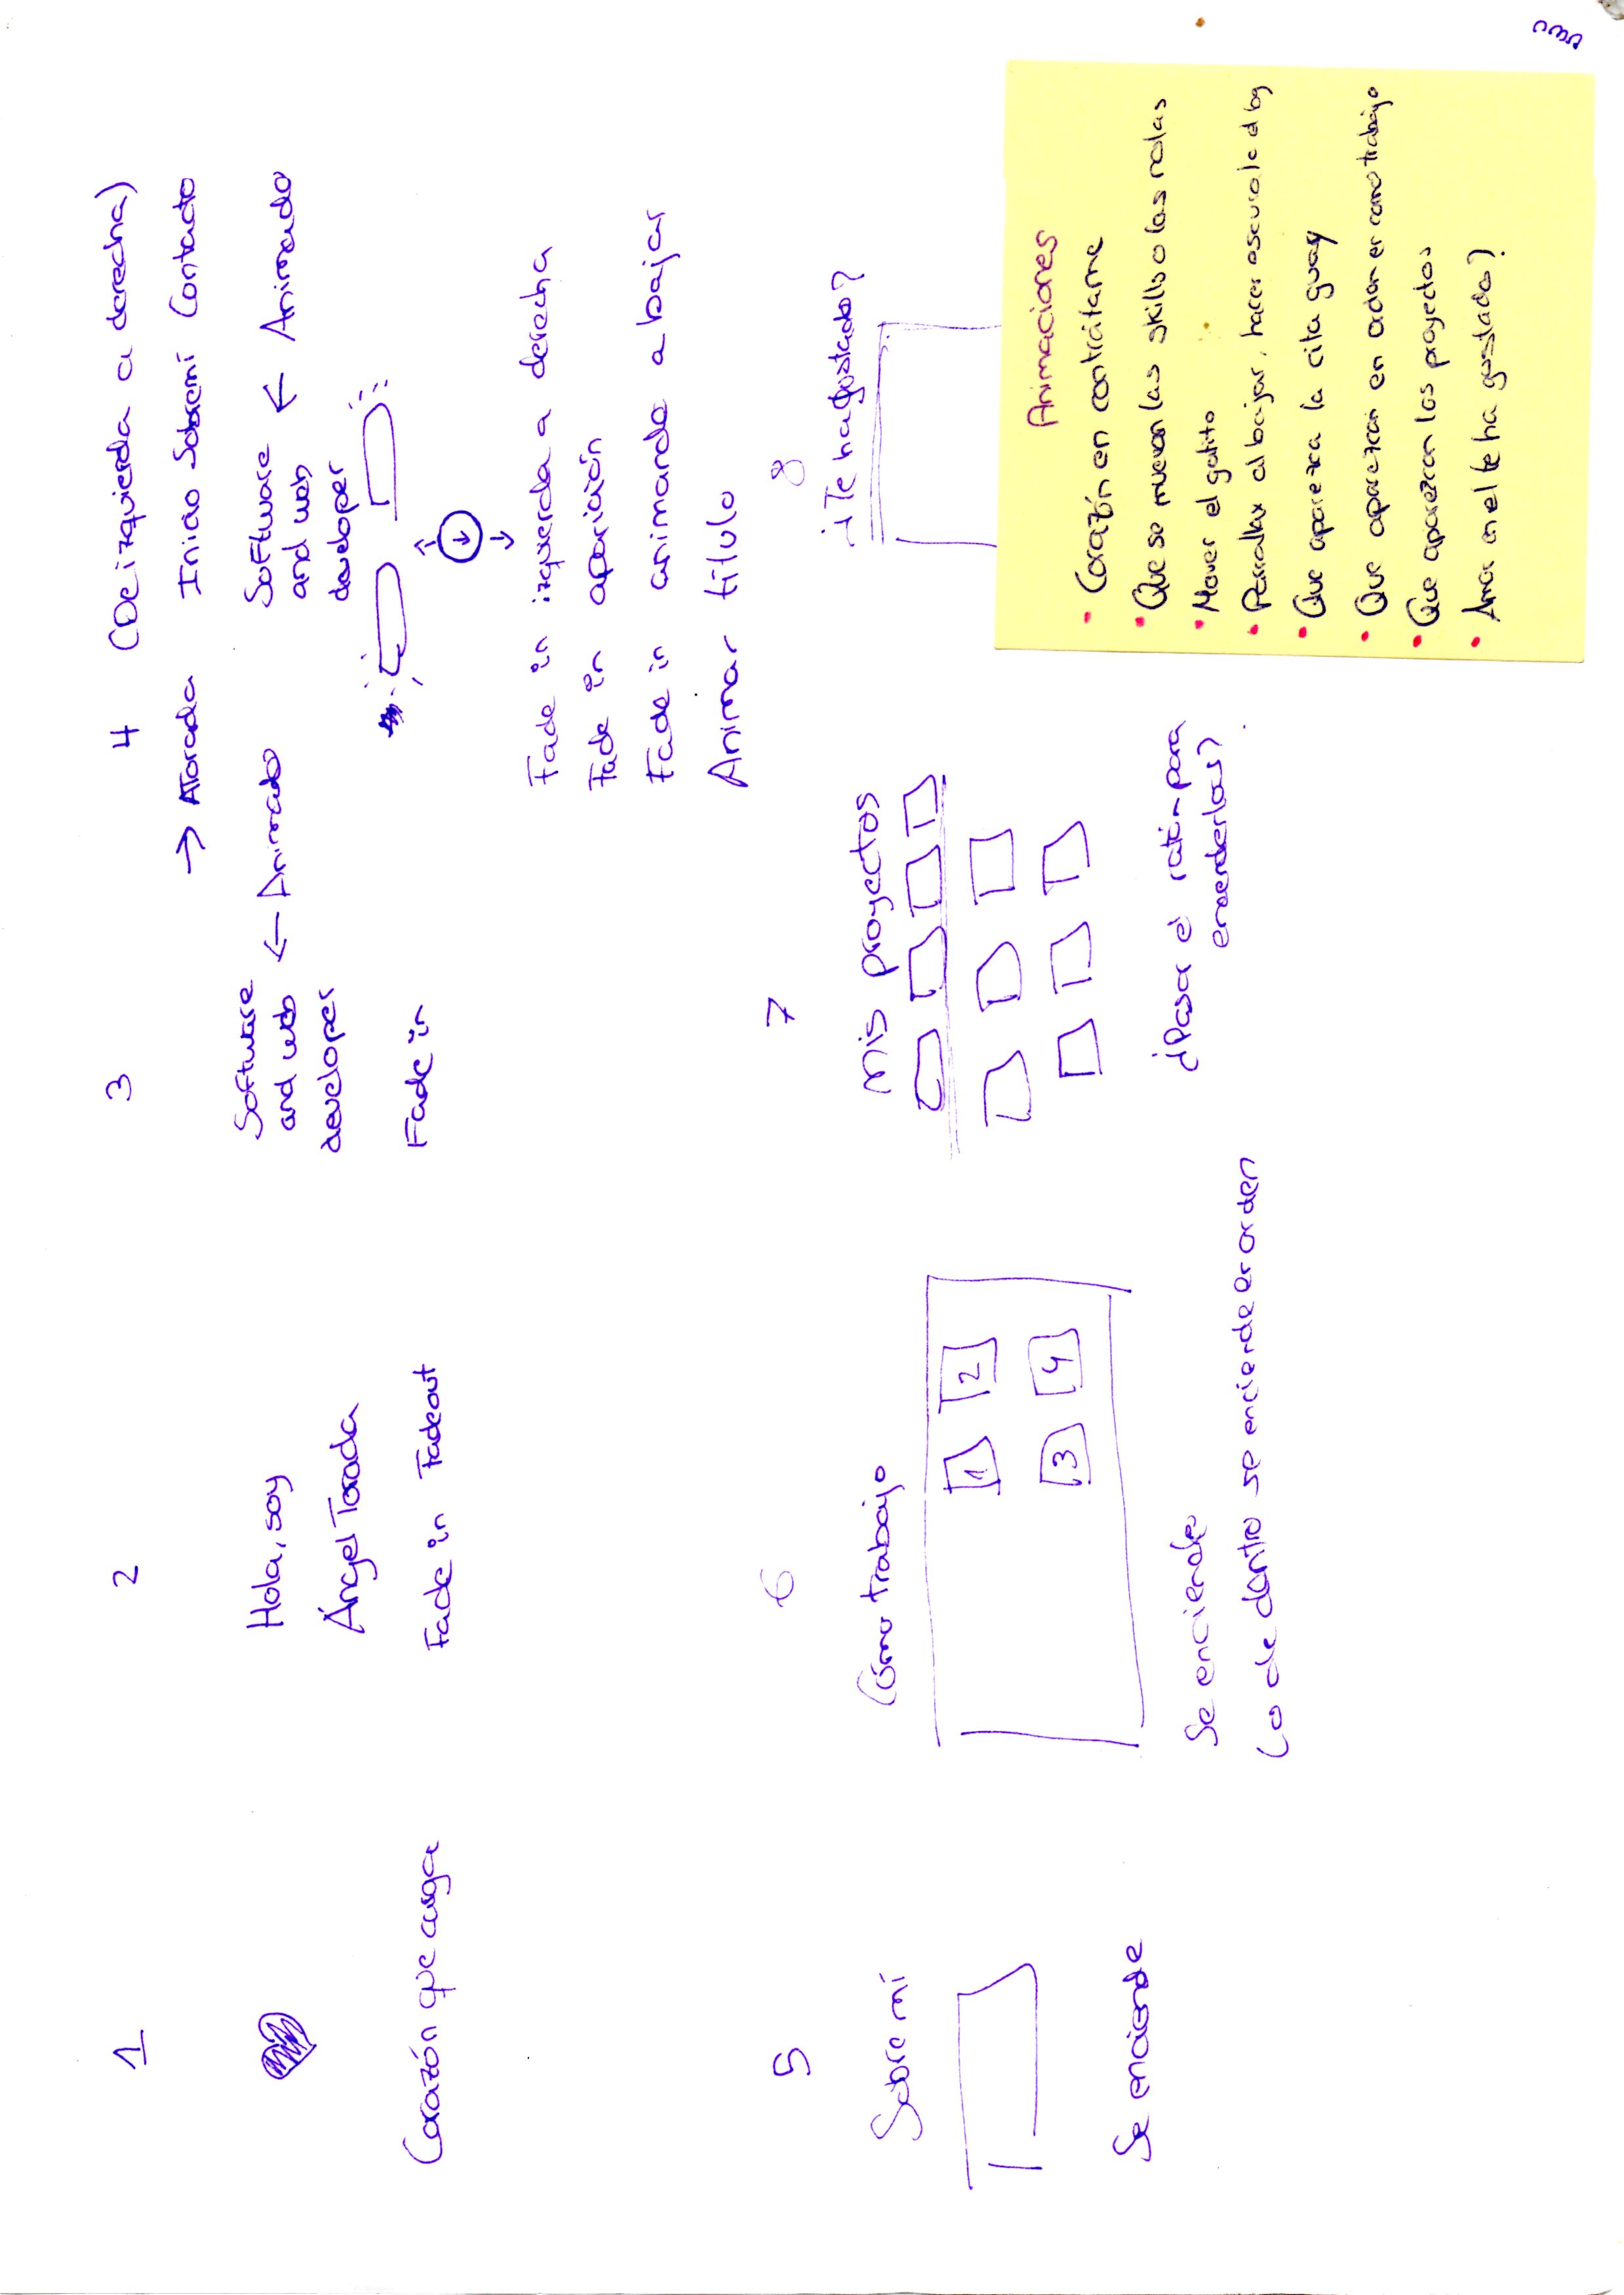 1
Corazón que carga
2
Hola, soy
Ángel Torada
Fade in Fadeout
3
Software
and web ← Animado
developer
Fade in
4 (De izquierda a derecha)
→ ATorada Inicio Sobremí Contacto
Software
and web ← Animado
developer
↑
↓
↓
Fade in izquierda a derecha
Fade in aparición
Fade in animando a bajar
Animar título
5
Sobre mí
Se enciende
6
Cómo trabajo
1 2
3 4
Se enciende
Lo de dentro se enciende en orden
7
Mis proyectos
¿Pasar el ratón para
encenderlos?
8
¿Te ha gustado?
Animaciones
• Corazón en contrátame
• Que se muevan las skills o las notas
• Mover el gatito
• Parallax al bajar, hacer oscuro el bg
• Que aparezca la cita guay
• Que aparezcan en orden en como trabajo
• Que aparezcan los proyectos
• en el te ha gustado?